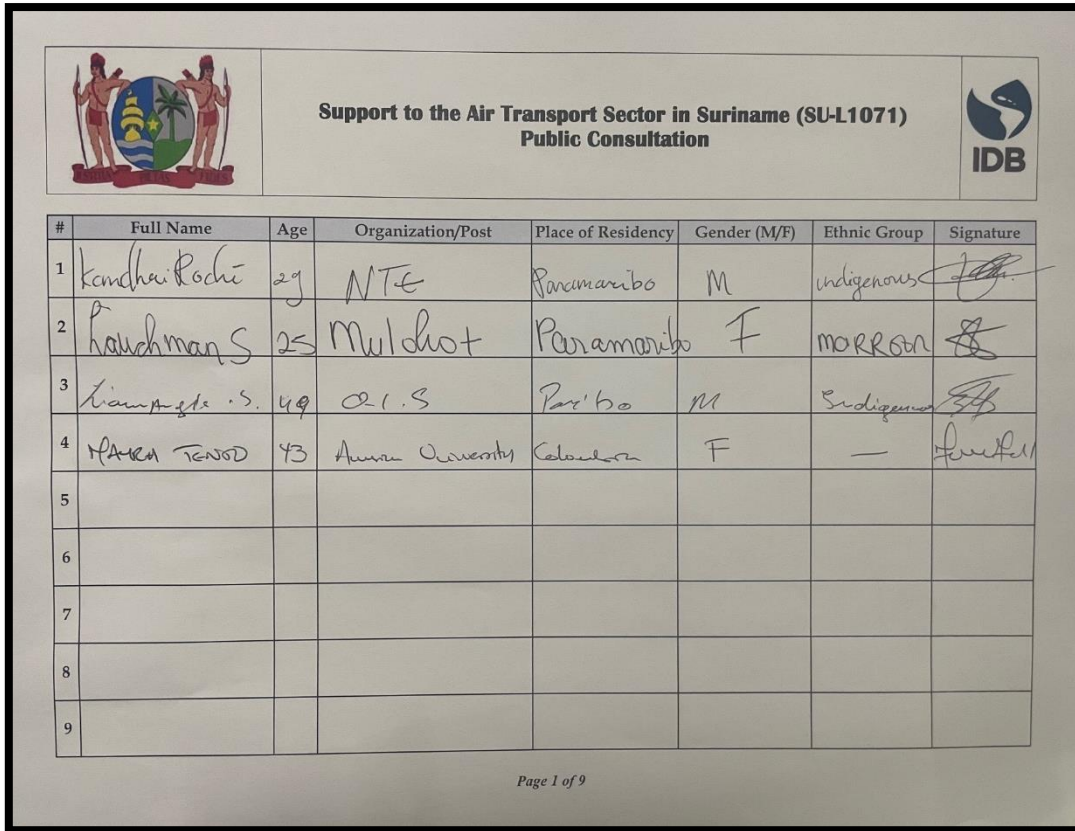 JUSTITIA PIETAS FIDES
Support to the Air Transport Sector in Suriname (SU-L1071)
Public Consultation
IDB
# Full Name Age Organization/Post Place of Residency Gender (M/F) Ethnic Group Signature
1 Kandhai Rochi 29 NTE Paramaribo M indigenous
2 Lauchman S 25 Mulchot Paramaribo F MARRON
3 .S. 49 O.I.S Par'bo M Indigenous
4 TENOD 43 University F —
5
6
7
8
9
Page 1 of 9